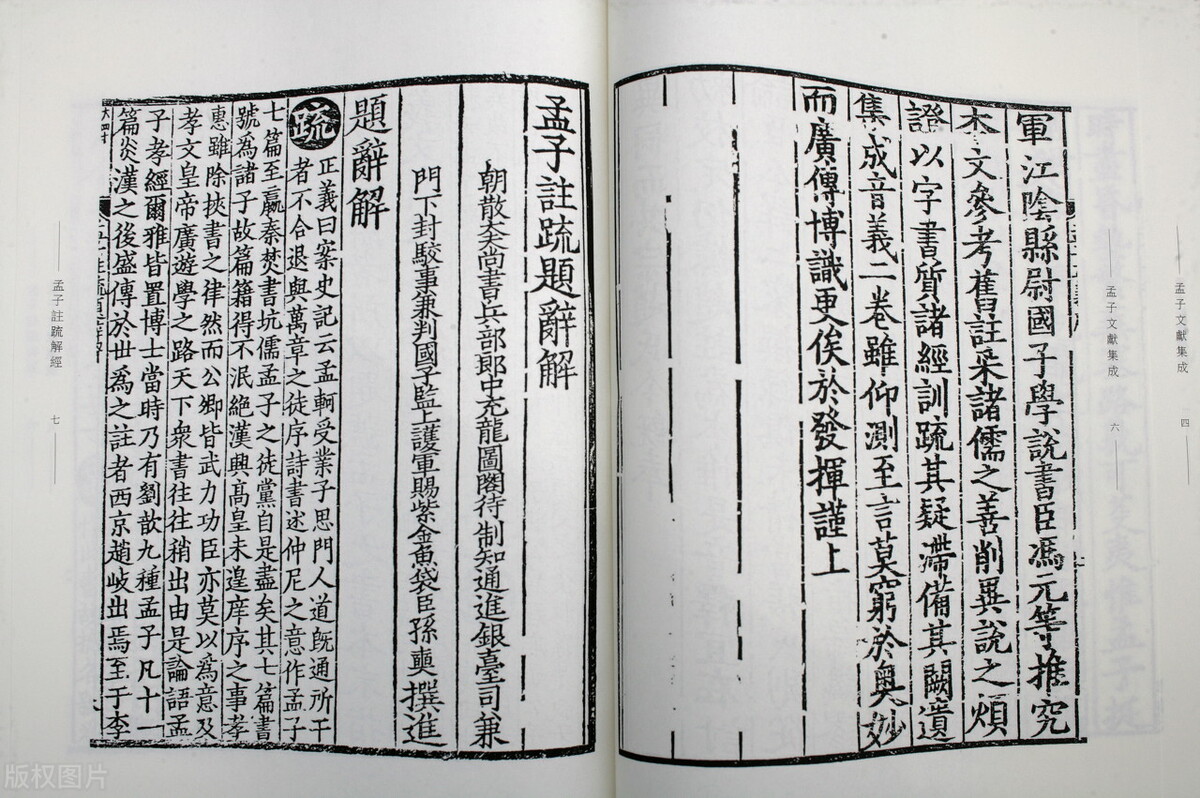 孟子文獻集成
四
孟子文獻集成
六
軍江陰縣尉國子學說書臣馮元等推究
本文參考舊註采諸儒之善削異說之煩
證以字書質諸經訓疏其疑滯備其闕遺
集成音義二卷雖仰測至言莫窮於奧妙
而廣傳博識更俟於發揮謹上
孟子註疏題辭解
朝散大夫尚書兵部郎中充龍圖閣待制知通進銀臺司兼
門下封駮事兼判國子監上護軍賜紫金魚袋臣孫奭撰進
題辭解
疏
正義曰案史記云孟軻受業子思門人道旣通所干
者不合退與萬章之徒序詩書述仲尼之意作孟子
七篇至嬴秦焚書坑儒孟子之徒黨自是盡矣其七篇書
號爲諸子故篇籍得不泯絕漢興高皇未遑庠序之事孝
惠雖除挾書之律然而公卿皆武力功臣亦莫以爲意及
孝文皇帝廣遊學之路天下衆書往往稍出由是論語孟
子孝經爾雅皆置博士當時乃有劉歆九種孟子凡十一
篇炎漢之後盛傳於世爲之註者西京趙岐出焉至于李
孟子註疏解經
七
版权图片